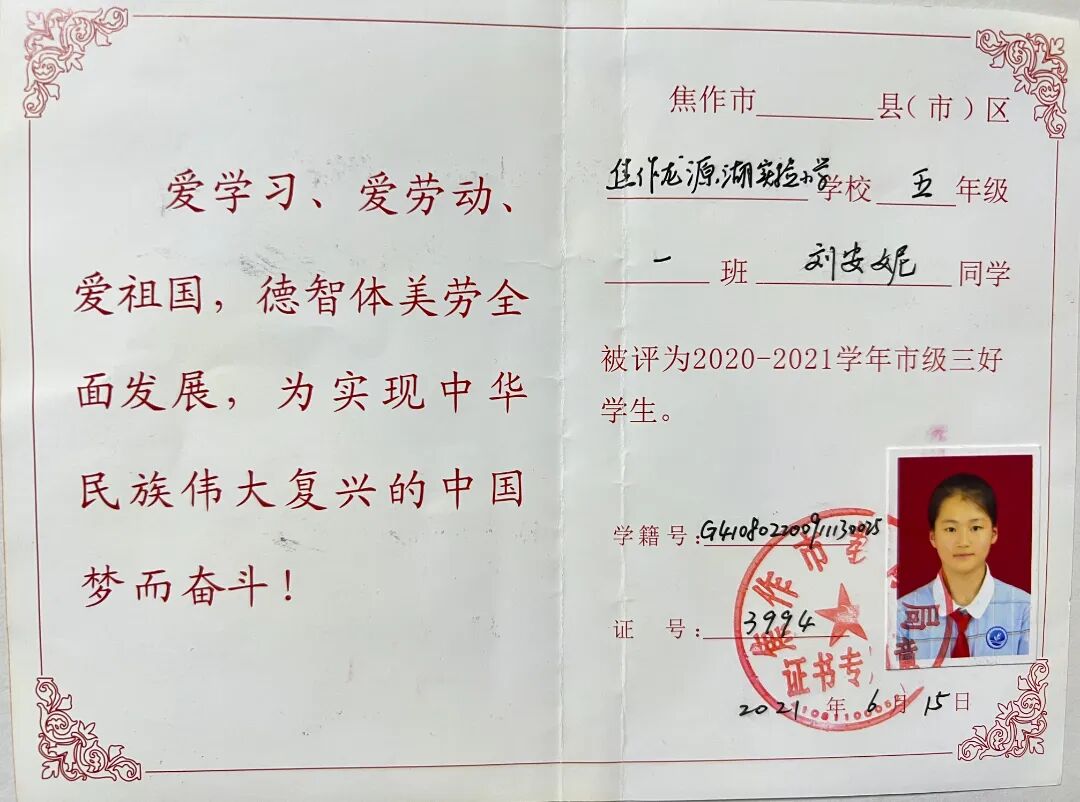 爱学习、爱劳动、
爱祖国，德智体美劳全
面发展，为实现中华
民族伟大复兴的中国
梦而奋斗！
焦作市 县（市）区
焦作龙源湖实验小学学校五年级
一班刘安妮同学
被评为2020-2021学年市级三好
学生。
学籍号：G410802200911130025
证 号：3994
焦作市 局
证书专
2021年6月15日